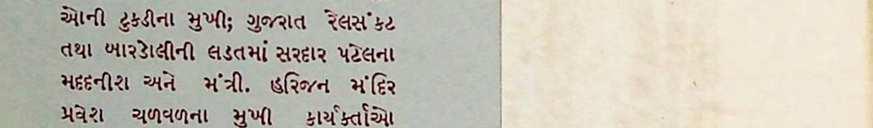 ઓની ટુકડીના મુખી; ગુજરાત રેલસંકટ
તથા બારડોલીની લડતમાં સરદાર પટેલના
મદદનીશ અને મંત્રી. હરિજન મંદિર
પ્રવેશ ચળવળના મુખી કાર્યકર્તાઓ